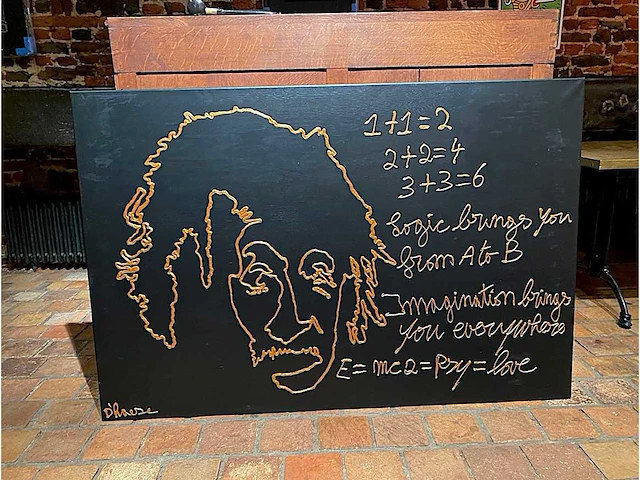 1+1=2
2+2=4
3+3=6
Logic brings you
from A to B
Imagination brings
you everywhere
E= mc2= Psy= love
D'Haese